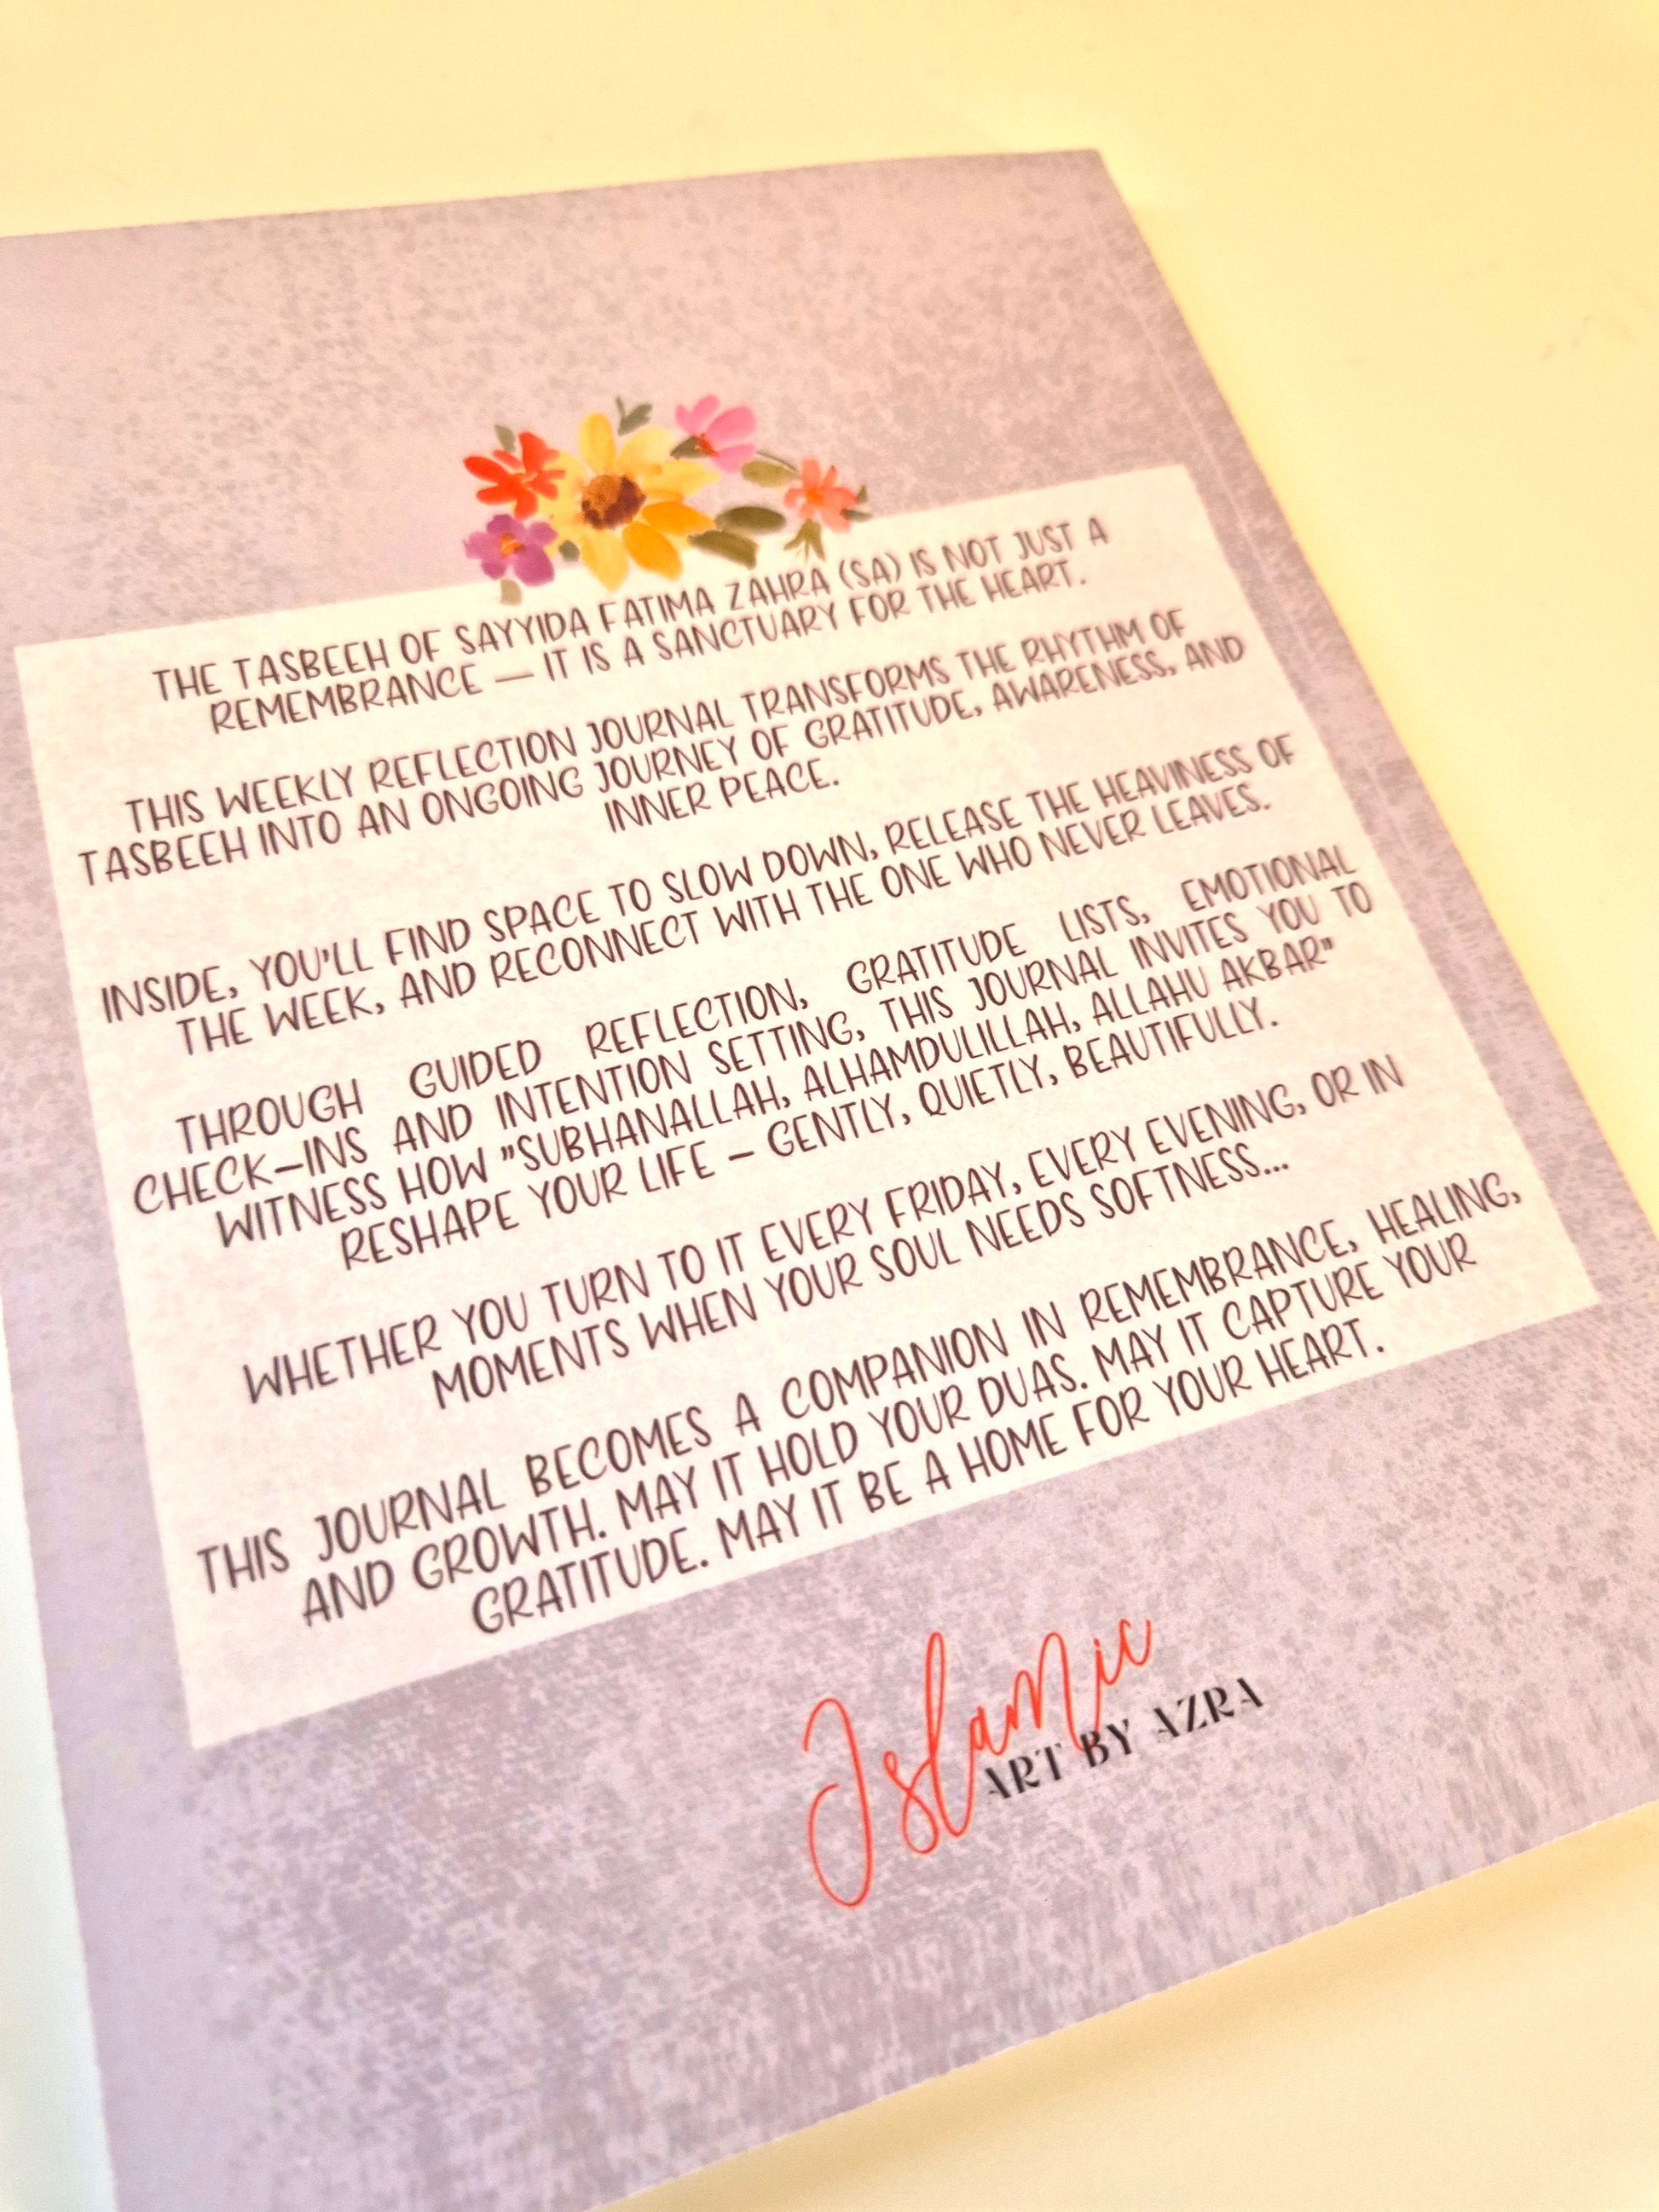 THE TASBEEH OF SAYYIDA FATIMA ZAHRA (SA) IS NOT JUST A
REMEMBRANCE — IT IS A SANCTUARY FOR THE HEART.
THIS WEEKLY REFLECTION JOURNAL TRANSFORMS THE RHYTHM OF
TASBEEH INTO AN ONGOING JOURNEY OF GRATITUDE, AWARENESS, AND
INNER PEACE.
INSIDE, YOU'LL FIND SPACE TO SLOW DOWN, RELEASE THE HEAVINESS OF
THE WEEK, AND RECONNECT WITH THE ONE WHO NEVER LEAVES.
THROUGH GUIDED REFLECTION, GRATITUDE LISTS, EMOTIONAL
CHECK-INS AND INTENTION SETTING, THIS JOURNAL INVITES YOU TO
WITNESS HOW "SUBHANALLAH, ALHAMDULILLAH, ALLAHU AKBAR"
RESHAPE YOUR LIFE – GENTLY, QUIETLY, BEAUTIFULLY.
WHETHER YOU TURN TO IT EVERY FRIDAY, EVERY EVENING, OR IN
MOMENTS WHEN YOUR SOUL NEEDS SOFTNESS...
THIS JOURNAL BECOMES A COMPANION IN REMEMBRANCE, HEALING,
AND GROWTH. MAY IT HOLD YOUR DUAS. MAY IT CAPTURE YOUR
GRATITUDE. MAY IT BE A HOME FOR YOUR HEART.
Islamic
ART BY AZRA